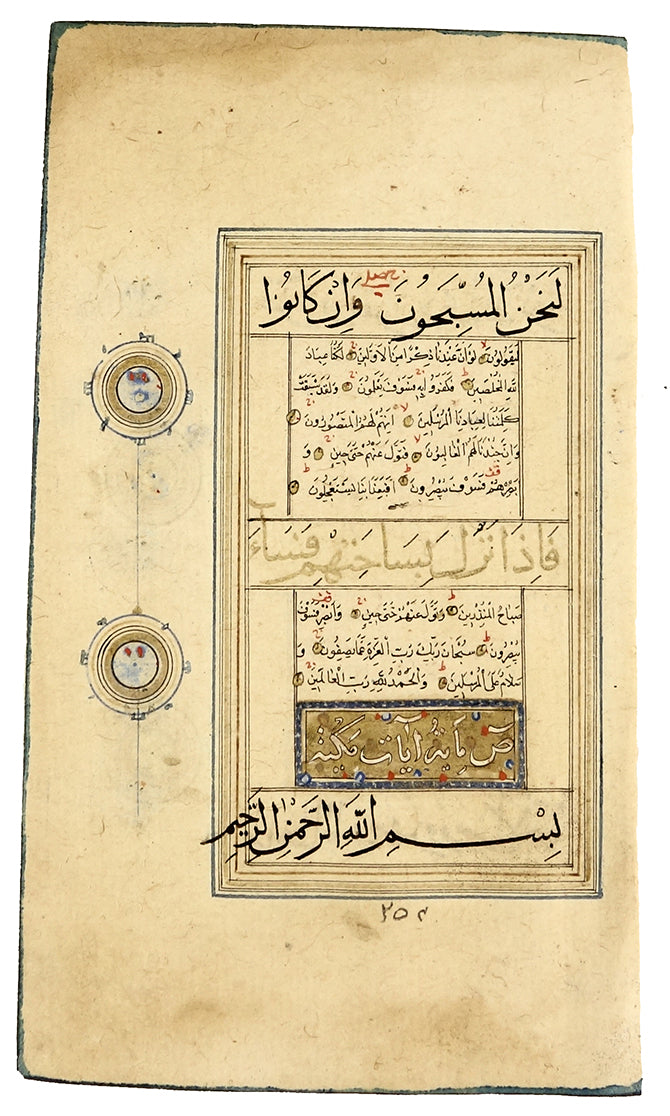 لَنَحْنُ المُسَبِّحُونَ وَاِنْ كَانُوا
لَيَقُولُونَ لَوْ اَنَّ عِنْدَنَا ذِكْرًا مِنَ الاَوَّلِينَ لَكُنَّا عِبَادَ
اللهِ المُخْلَصِينَ فَكَفَرُوا بِهِ فَسَوْفَ يَعْلَمُونَ وَلَقَدْ سَبَقَتْ
كَلِمَتُنَا لِعِبَادِنَا المُرْسَلِينَ اِنَّهُمْ لَهُمُ المَنْصُورُونَ
وَاِنَّ جُنْدَنَا لَهُمُ الْغَالِبُونَ فَتَوَلَّ عَنْهُمْ حَتَّى حِينٍ وَ
اَبْصِرْهُمْ فَسَوْفَ يُبْصِرُونَ اَفَبِعَذَابِنَا يَسْتَعْجِلُونَ
فَاِذَا نَزَلَ بِسَاحَتِهِمْ فَسَآءَ
صَبَاحُ المُنْذَرِينَ وَتَوَلَّ عَنْهُمْ حَتَّى حِينٍ وَاَبْصِرْ فَسَوْفَ
يُبْصِرُونَ سُبْحَانَ رَبِّكَ رَبِّ الْعِزَّةِ عَمَّا يَصِفُونَ وَ
سَلَامٌ عَلَى المُرْسَلِينَ وَالْحَمْدُ لِلّهِ رَبِّ الْعَالَمِينَ
صٓ مايةُ اٰيات مكيّة
بِسْمِ اللهِ الرَّحْمٰنِ الرَّحِيمِ